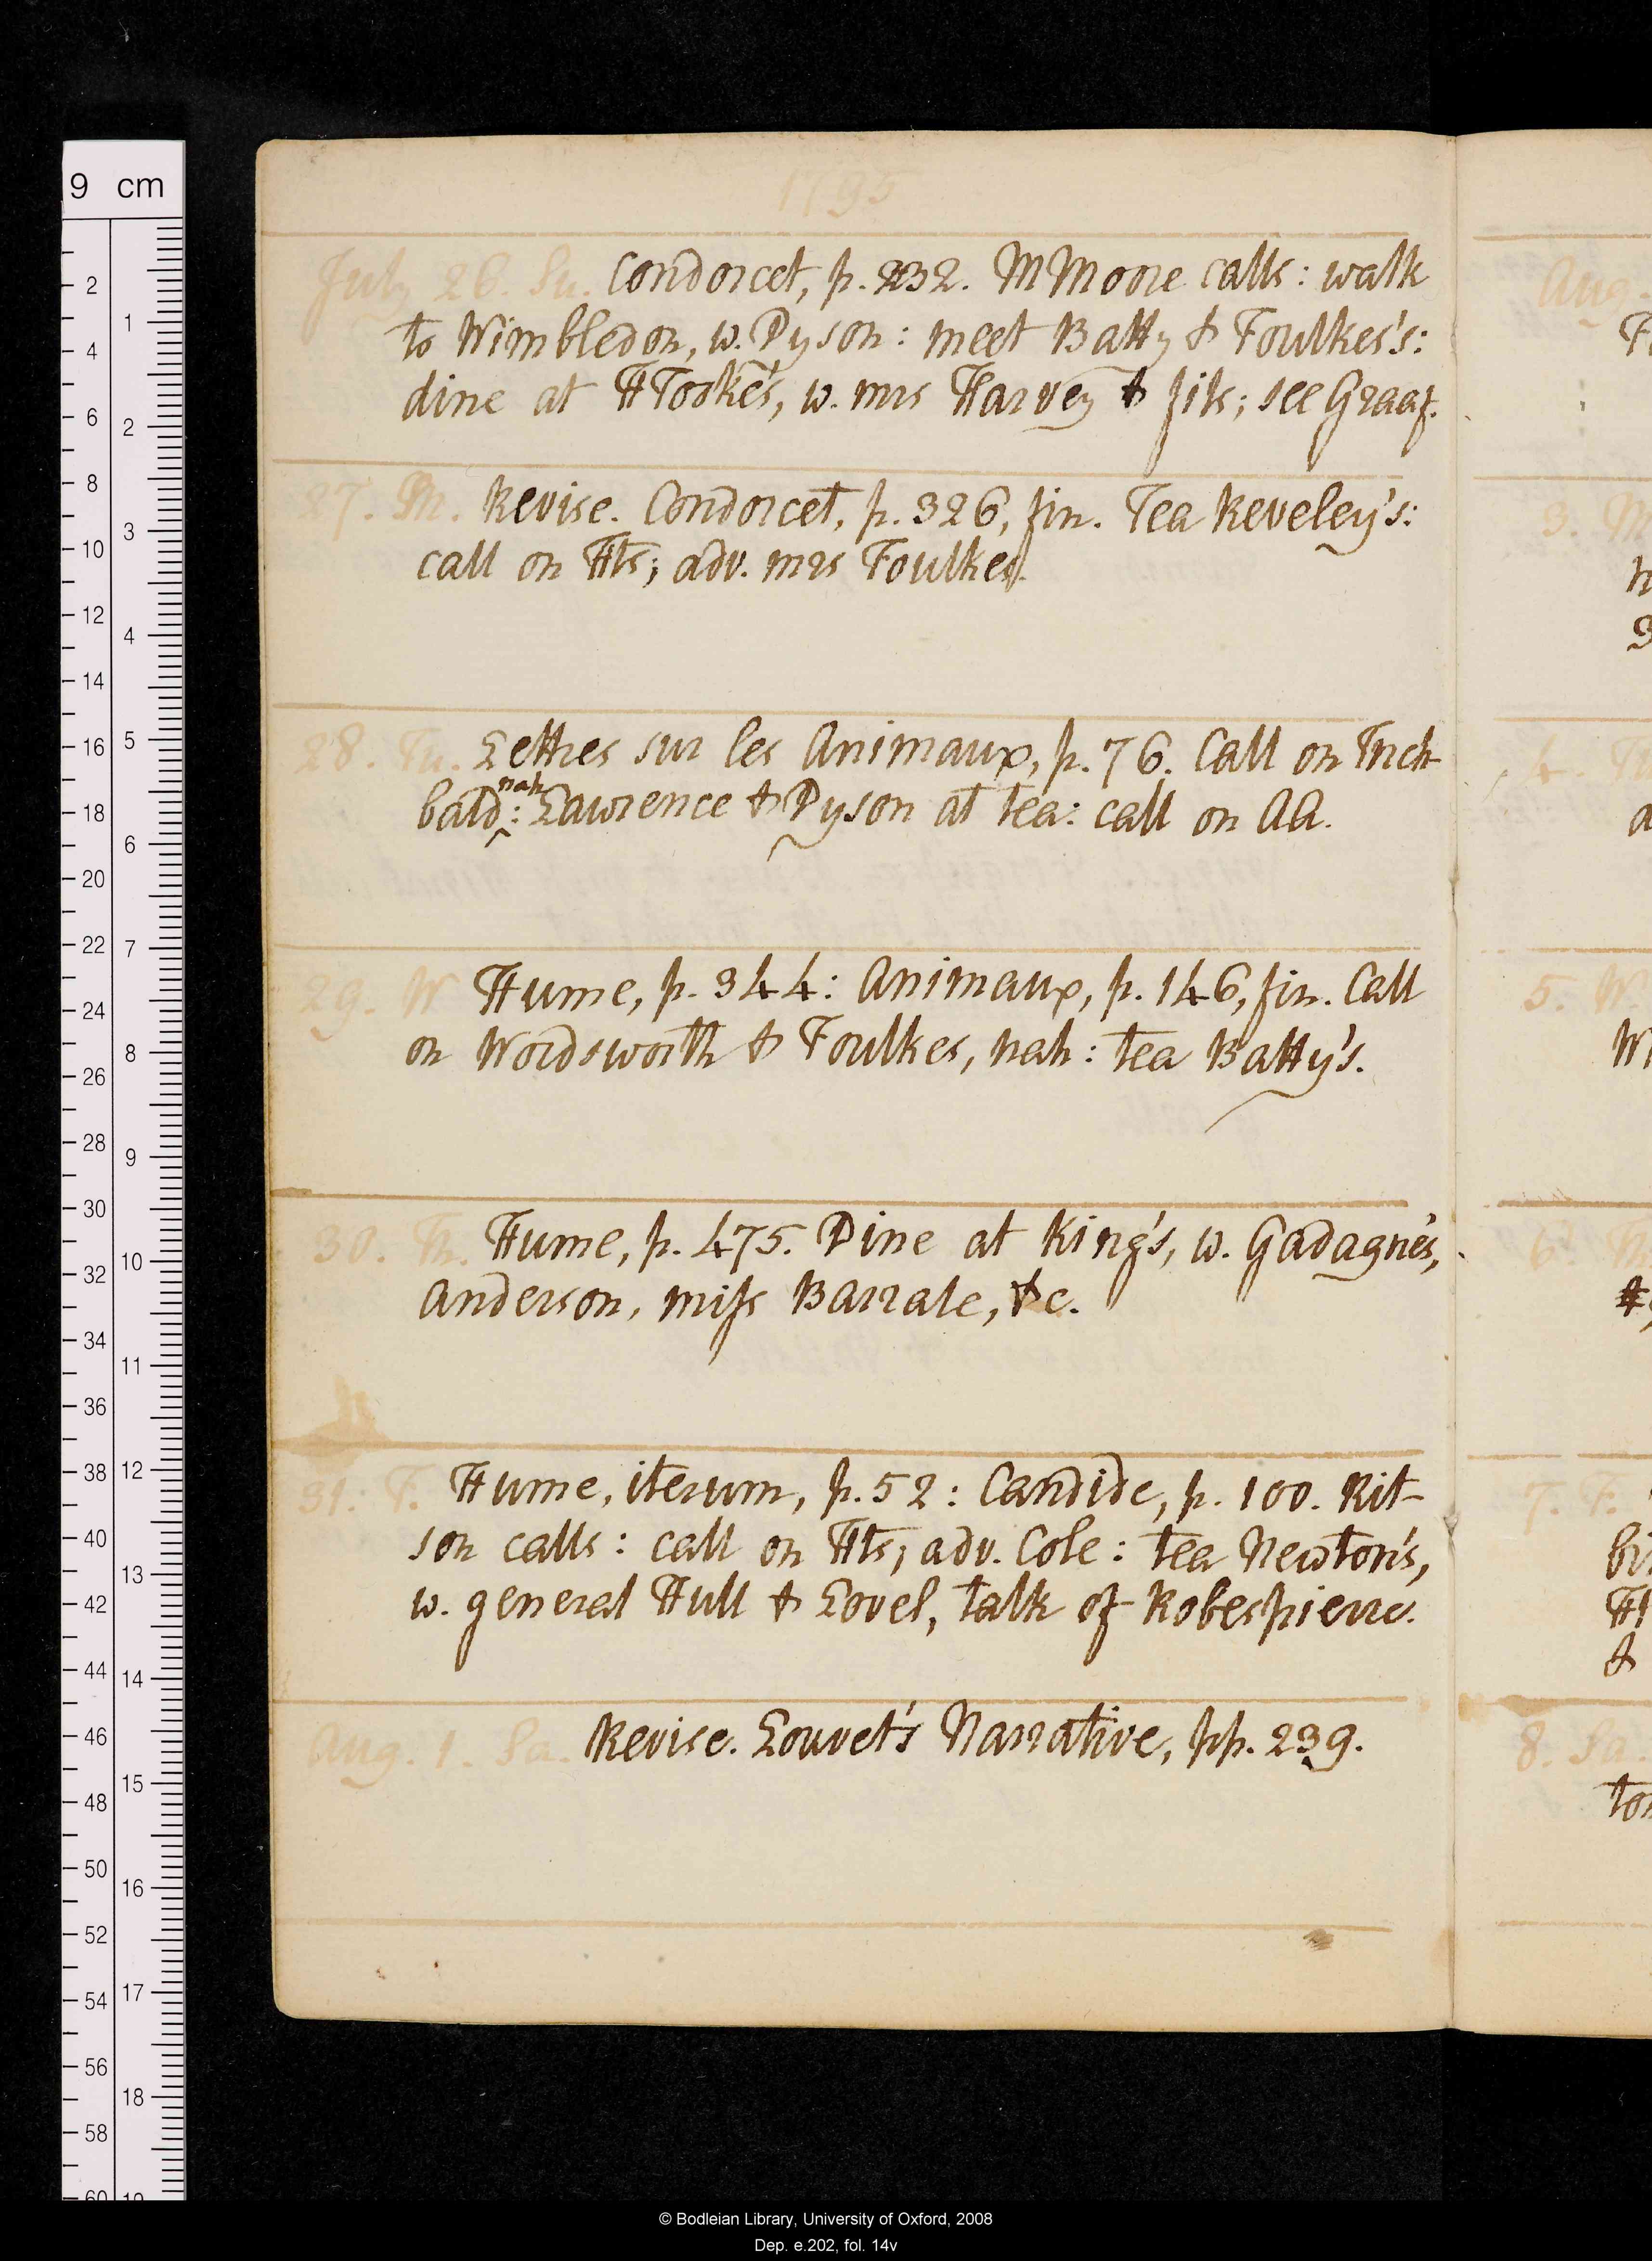 1795
July 26. Su. Condorcet, p. 232. MMoore calls: walk
to Wimbledon, w. Dyson: meet Batty & Foulkes's:
dine at HTooke's, w. mrs Harvey & fils; see Graaf.
27. M. Revise. Condorcet, p. 326, fin. Tea Reveley's:
call on Hts; adv. mrs Foulkes.
28. Tu. Lettres sur les Animaux, p. 76. Call on Inch-
bald^nah: Lawrence & Dyson at tea: call on AA.
29. W Hume, p. 344: Animaux, p. 146, fin. Call
on Wordsworth & Foulkes, nah: tea Batty's.
30. Th. Hume, p. 475. Dine at King's, w. Gadagnes,
Anderson, miss Barrale, &c.
31. F. Hume, iterum, p. 52: Candide, p. 100. Rit-
son calls: call on Hts; adv. Cole: tea Newton's,
w. general Hull & Lovel, talk of Robespierre.
Aug. 1. Sa. Revise. Louvet's Narrative, pp. 239.
© Bodleian Library, University of Oxford, 2008
Dep. e.202, fol. 14v